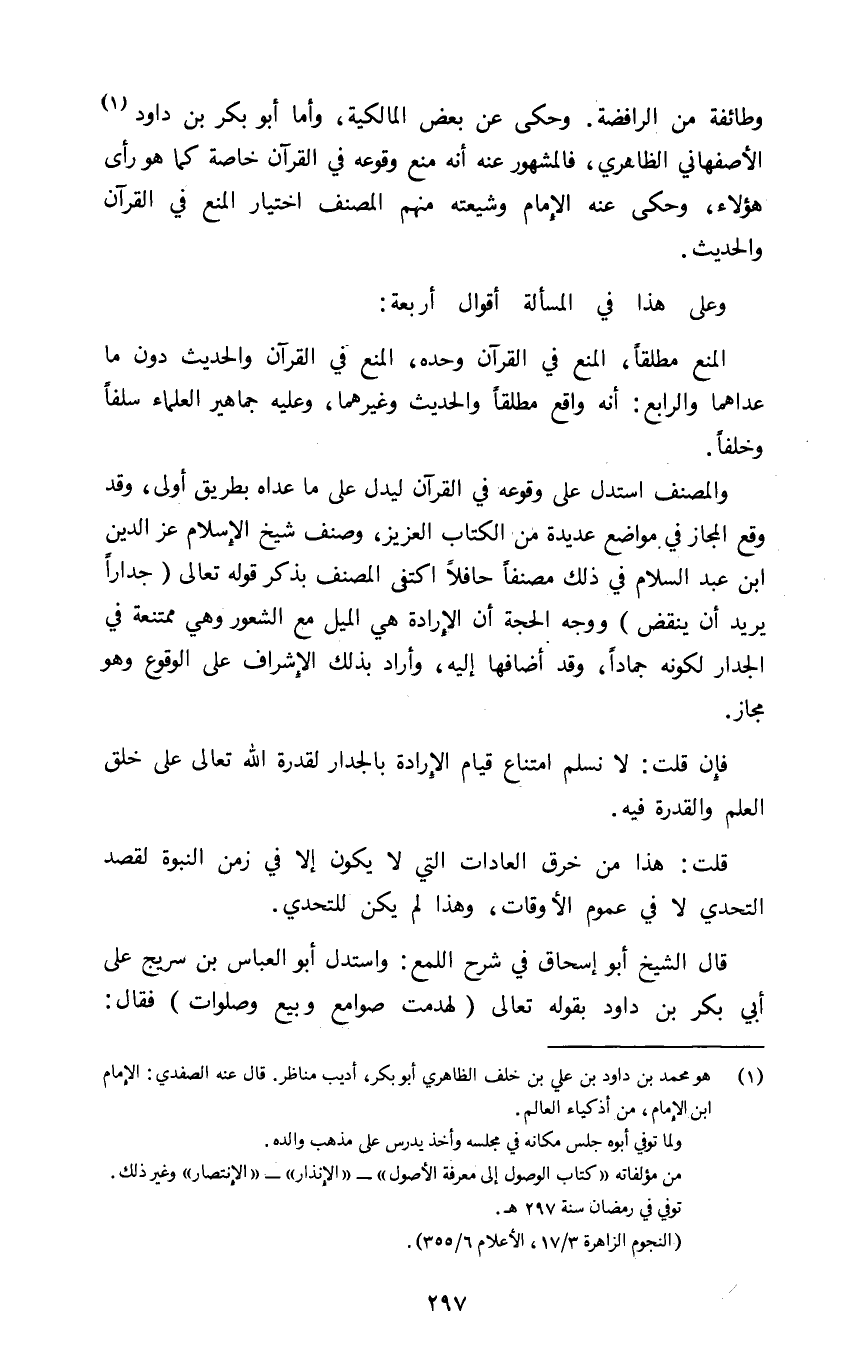 وطائفة من الرافضة. وحكى عن بعض المالكية، وأما أبو بكر بن داود (١)
الأصفهاني الظاهري، فالمشهور عنه أنه منع وقوعه في القرآن خاصة كما هو رأى
هؤلاء، وحكى عنه الإمام وشيعته منهم المصنف اختيار المنع في القرآن
والحديث.
وعلى هذا في المسألة أقوال أربعة:
المنع مطلقاً، المنع في القرآن وحده، المنع في القرآن والحديث دون ما
عداهما والرابع: أنه واقع مطلقاً والحديث وغيرهما، وعليه جماهير العلماء سلفاً
وخلفاً.
والمصنف استدل على وقوعه في القرآن ليدل على ما عداه بطريق أولى، وقد
وقع المجاز في مواضع عديدة من الكتاب العزيز، وصنف شيخ الإسلام عز الدين
ابن عبد السلام في ذلك مصنفاً حافلاً اكتفى المصنف بذكر قوله تعالى ( جداراً
يريد أن ينقض ) ووجه الحجة أن الإرادة هي الميل مع الشعور وهي ممتنعة في
الجدار لكونه جماداً، وقد أضافها إليه، وأراد بذلك الإشراف على الوقوع وهو
مجاز.
فإن قلت: لا نسلم امتناع قيام الإرادة بالجدار لقدرة الله تعالى على خلق
العلم والقدرة فيه.
قلت: هذا من خرق العادات التي لا يكون إلا في زمن النبوة لقصد
التحدي لا في عموم الأوقات، وهذا لم يكن للتحدي.
قال الشيخ أبو إسحاق في شرح اللمع: واستدل أبو العباس بن سريج على
أبي بكر بن داود بقوله تعالى ( لهدمت صوامع وبيع وصلوات ) فقال:
(١) هو محمد بن داود بن علي بن خلف الظاهري أبو بكر، أديب مناظر. قال عنه الصفدي: الإمام
ابن الإمام، من أذكياء العالم.
ولما توفي أبوه جلس مكانه في مجلسه وأخذ يدرس على مذهب والده.
من مؤلفاته «كتاب الوصول إلى معرفة الأصول» ــ «الإنذار» ــ «الإنتصار» وغير ذلك.
توفي في رمضان سنة ٢٩٧ هـ.
(النجوم الزاهرة ١٧/٣، الأعلام ٣٥٥/٦).
٢٩٧